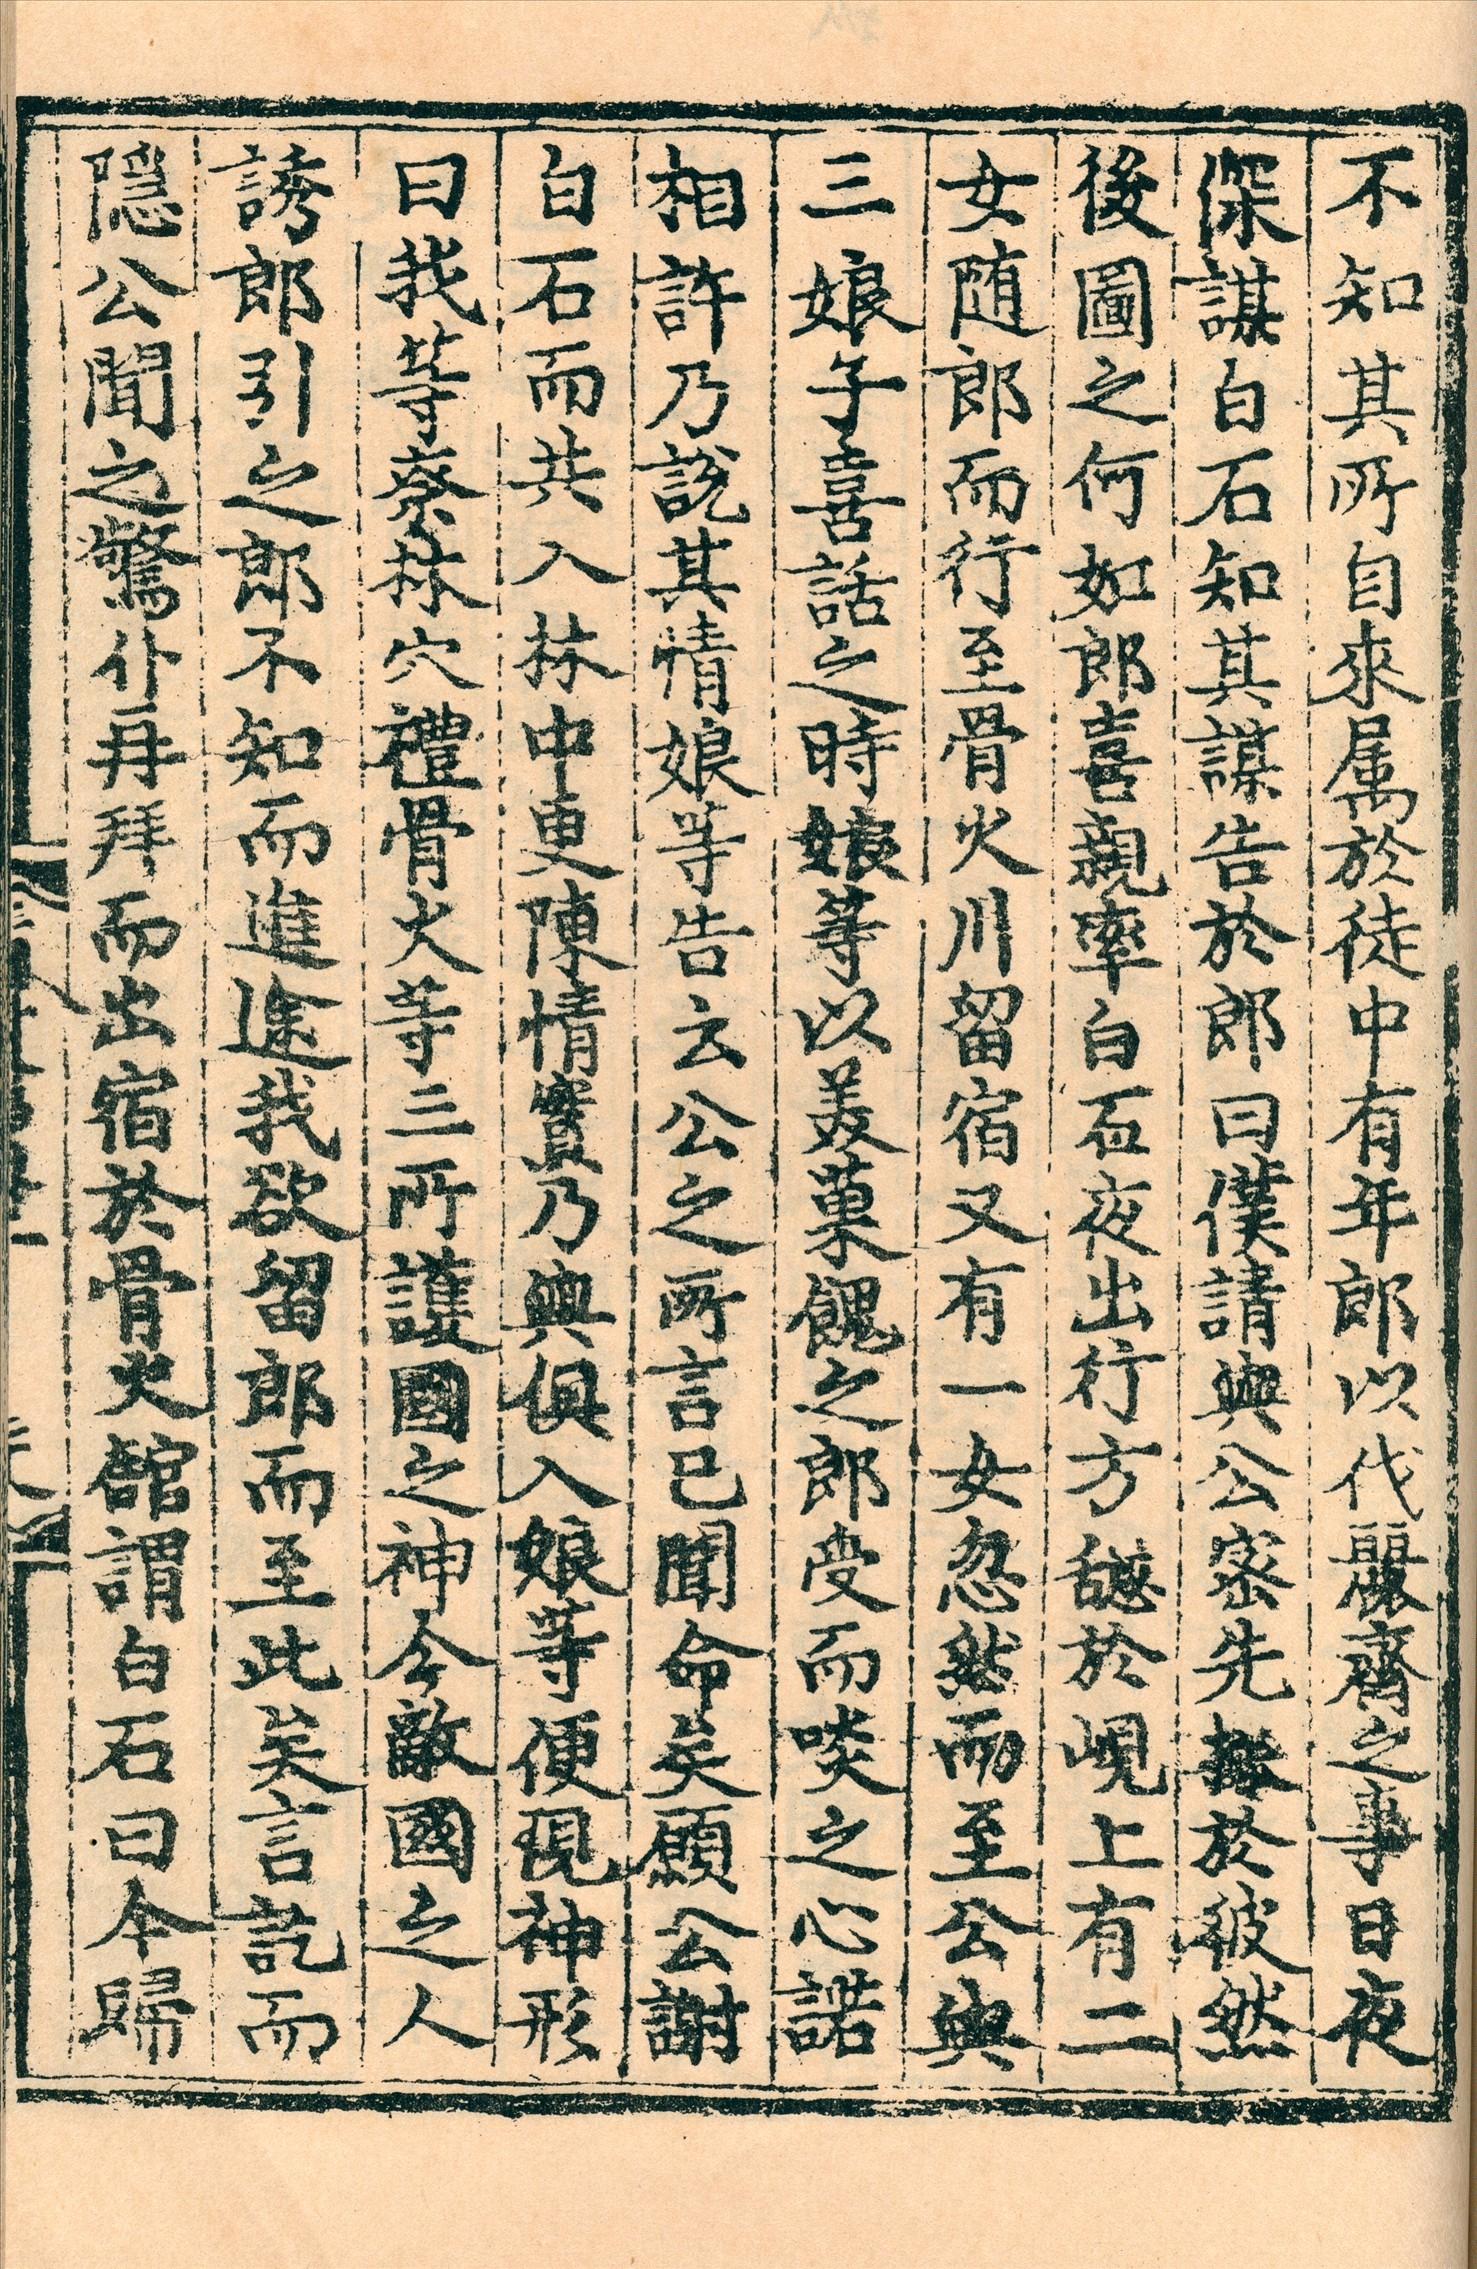 不知其所自來属於徒中有年郎以伐麗濟之事日夜
深謀白石知其謀告於郎曰僕請與公密先探於彼然
後圖之何如郎喜親率白石夜出行方憩於峴上有二
女随郎而行至骨火川留宿又有一女忽然而至公與
三娘子喜話之時娘等以美菓餽之郎受而啖之心諾
相許乃說其情娘等告云公之所言已聞命矣願公謝
白石而共入林中更陳情實乃與俱入娘等便現神形
曰我等奈林穴禮骨火等三所護國之神今敵國之人
誘郎引之郎不知而進途我欲留郎而至此矣言訖而
隱公聞之驚仆再拜而出宿於骨火舘謂白石曰今歸